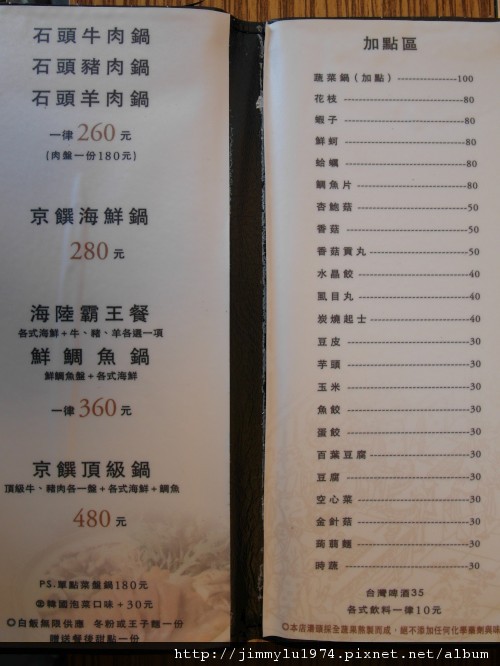 石頭牛肉鍋
石頭豬肉鍋
石頭羊肉鍋
一律 260 元
(肉盤一份180元)
京饌海鮮鍋
280 元
海陸霸王餐
各式海鮮+牛、豬、羊各選一項
鮮鯛魚鍋
鮮鯛魚盤+各式海鮮
一律 360 元
京饌頂級鍋
頂級牛、豬肉各一盤+各式海鮮+鯛魚
480 元
PS.單點菜盤鍋180元
韓國泡菜口味+30元
◎白飯無限供應 冬粉或王子麵一份
贈送餐後甜點一份
加點區
蔬菜鍋(加點)---100
花枝---80
蝦子---80
鮮蚵---80
蛤蠣---80
鯛魚片---80
杏鮑菇---50
香菇---50
香菇貢丸---50
水晶餃---40
虱目丸---40
炭燒起士---40
豆皮---30
芋頭---30
玉米---30
魚餃---30
蛋餃---30
百葉豆腐---30
豆腐---30
空心菜---30
金針菇---30
蒟蒻麵---30
時蔬---30
台灣啤酒35
各式飲料一律10元
◎本店湯頭採全蔬果熬製而成,絕不添加任何化學藥劑調味
http://jimmylu1974.pixnet.net/album